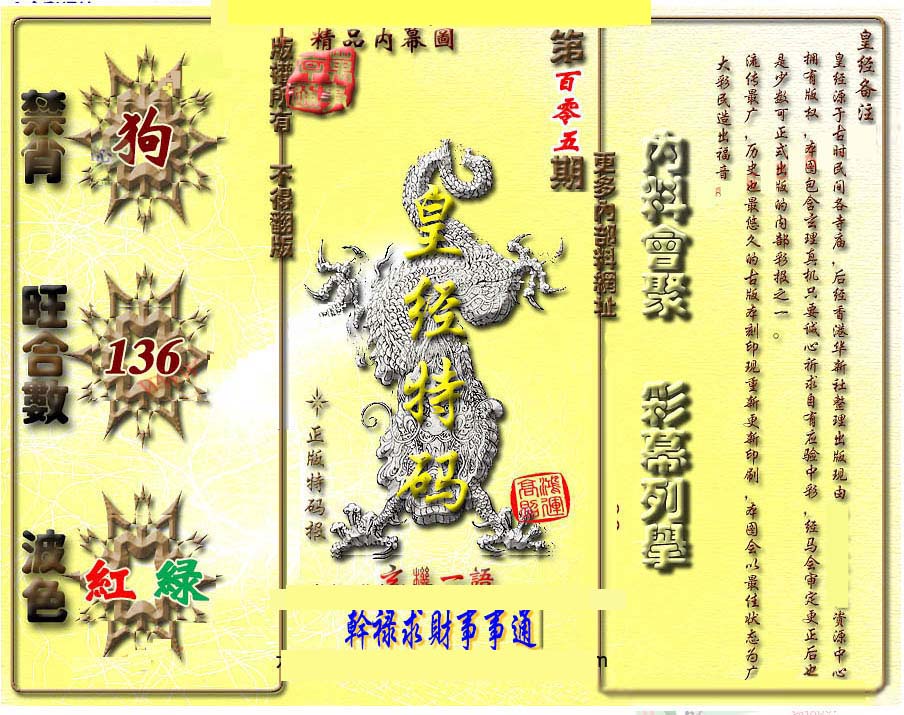 禁肖
狗
旺合數
136
波色
紅 綠
版權所有 不得翻版
精品内幕圖
第百零五期
皇经特码
正版特码报
鴻運
高照
玄機一語
幹禄求財事事通
更多内部料網址
内料會聚 彩幕列舉
皇经备注
皇经源于古时民间各寺庙,后经香港华新社整理出版现由 资源中心
拥有版权,本图包含玄理真机只要诚心祈求自有应验中彩,经马会审定更正后也
是少数可正式出版的内部彩报之一。
流传最广,历史也最悠久的古版本刻印现重新更新印刷,本图会以最佳状态为广
大彩民造出福音